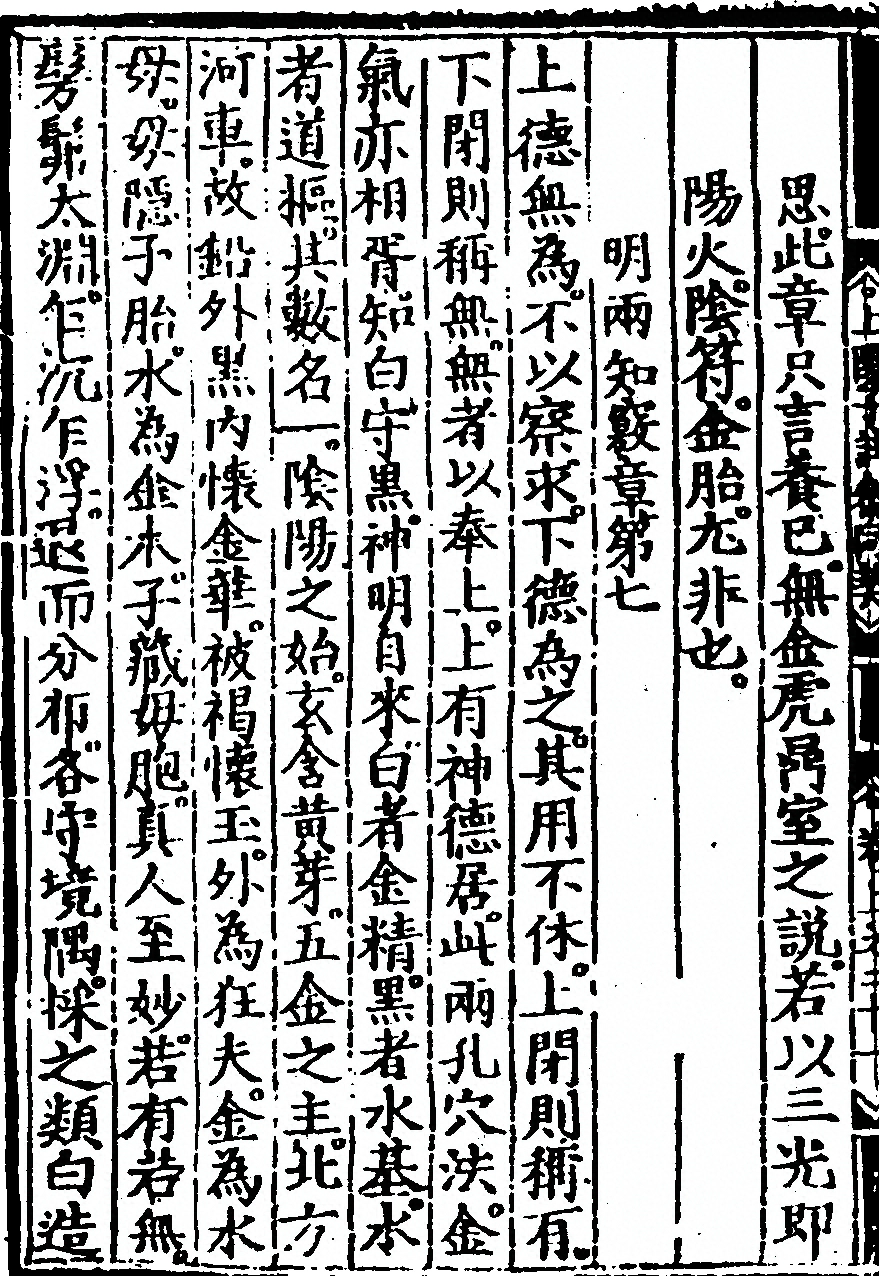 思此章只言養已無金虎鼎室之說若以三光即
陽火陰符金胎尤非也
明兩知竅章第七
上德無為不以察求下德為之其用不休上閉則稱有
下閉則稱無無者以奉上上有神德居此兩孔穴法金
氣亦相胥知白守黑神明自來白者金精黑者水基水
者道樞其數名一陰陽之始玄含黄芽五金之主北方
河車故鉛外黑內懷金華被褐懷玉外為狂夫金為水
母母隱子胎水為金水子藏母胞真人至妙若有若無
髣髴太淵乍沉乍浮退而分布各守境隅採之類白造